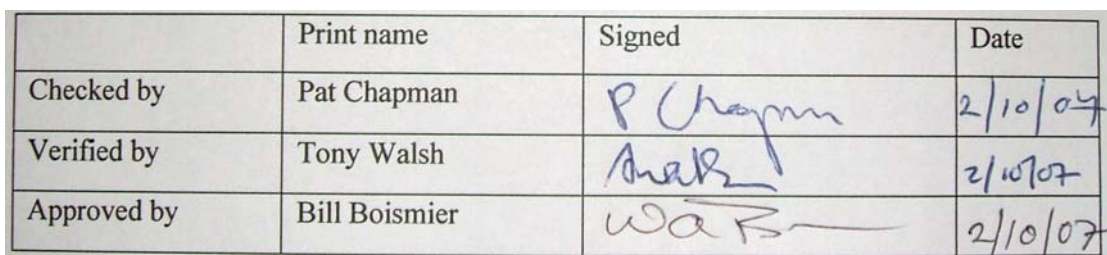 Print name Signed Date
Checked by Pat Chapman P Chapman 2/10/07
Verified by Tony Walsh 2/10/07
Approved by Bill Boismier 2/10/07